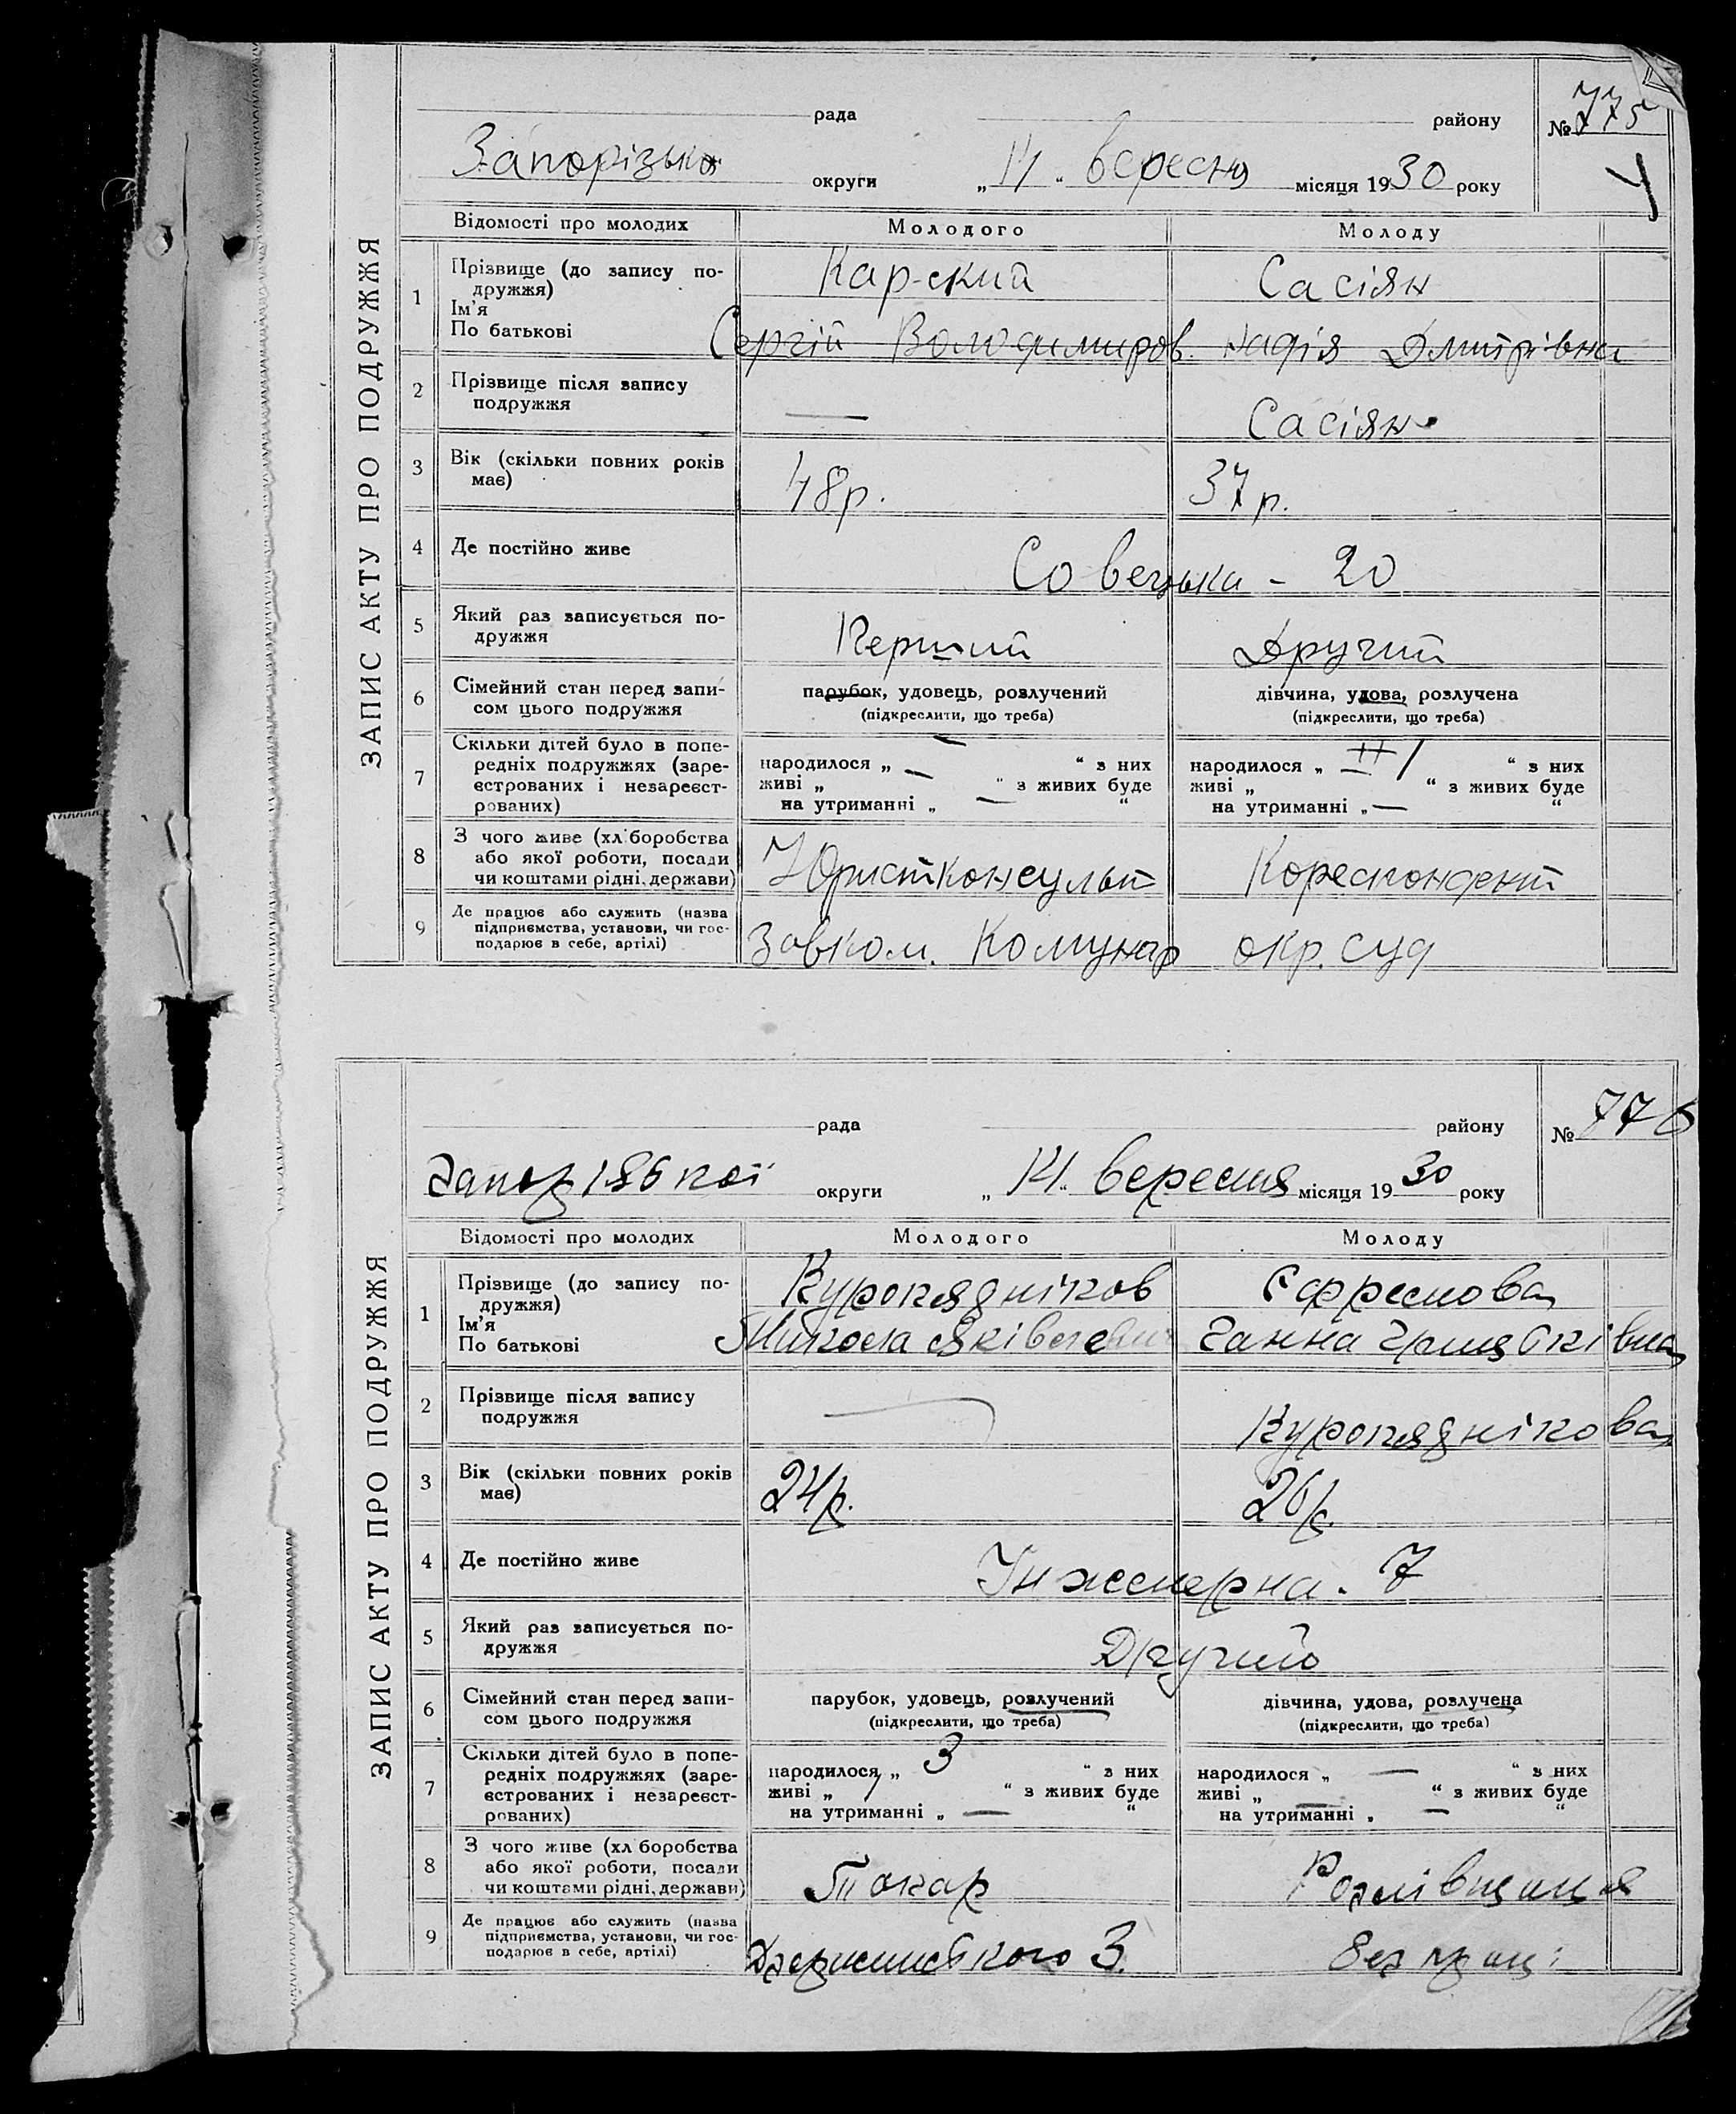 ЗАПИС АКТУ ПРО ПОДРУЖЖЯ
рада району № 775
Запорізько округи „14“ вересня місяця 1930 року
Відомості про молодих Молодого Молоду
1 Прізвище (до запису по-
дружжя)
Ім'я
По батькові
Кар-ский Сасіян
Сергій Володимиров. Надія Дмитрівна
2 Прізвище після запису
подружжя
— Сасіян
3 Вік (скільки повних років
має)
48р. 37р.
4 Де постійно живе Совецька – 20
5 Який раз записується по-
дружжя
Перший Другий
6 Сімейний стан перед запи-
сом цього подружжя
парубок, удовець, розлучений дівчина, удова, розлучена
(підкреслити, що треба) (підкреслити, що треба)
7 Скільки дітей було в попе-
редніх подружжях (заре-
єстрованих і незареєст-
рованих)
народилося „ — “ з них народилося „ “ з них
живі „ — “ з живих буде живі „ — “ з живих буде
на утриманні „ — “ на утриманні „ — “
8 З чого живе (хліборобства
або якої роботи, посади
чи коштами рідні, держави)
Юристконсульт Кореспондент
9 Де працює або служить (назва
підприємства, установи, чи гос-
подарює в себе, артілі)
Завком. Комунар окр. суд
ЗАПИС АКТУ ПРО ПОДРУЖЖЯ
рада району № 776
округи „14“ вересня місяця 1930 року
Відомості про молодих Молодого Молоду
1 Прізвище (до запису по-
дружжя)
Ім'я
По батькові
Куропядніков
Микола Яківлеви Ганна
2 Прізвище після запису
подружжя
— Куропяднікова
3 Вік (скільки повних років
має)
24р. 26р.
4 Де постійно живе Інженерна - 7
5 Який раз записується по-
дружжя
Другий
6 Сімейний стан перед запи-
сом цього подружжя
парубок, удовець, розлучений дівчина, удова, розлучена
(підкреслити, що треба) (підкреслити, що треба)
7 Скільки дітей було в попе-
редніх подружжях (заре-
єстрованих і незареєст-
рованих)
народилося „ 3 “ з них народилося „ — “ з них
живі „ / “ з живих буде живі „ — “ з живих буде
на утриманні „ — “ на утриманні „ — “
8 З чого живе (хліборобства
або якої роботи, посади
чи коштами рідні, держави)
Токар
9 Де працює або служить (назва
підприємства, установи, чи гос-
подарює в себе, артілі)
З. Без праці